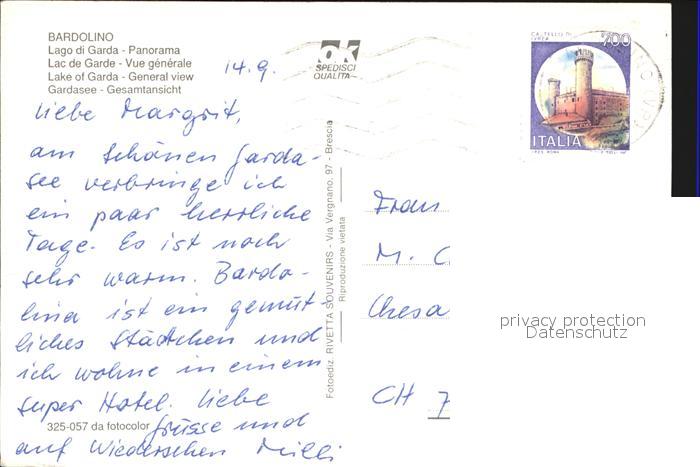 BARDOLINO
Lago di Garda - Panorama
Lac de Garde - Vue générale
Lake of Garda - General view
Gardasee - Gesamtansicht
14.9.
ok
SPEDISCI
QUALITA
CASTELLO DI
IVREA
700
ITALIA
Liebe Margrit,
am schönen Garda-
see verbringe ich
ein paar herrliche
Tage. Es ist noch
sehr warm. Bardo-
lino ist ein gemüt-
liches Städtchen und
ich wohne in einem
super Hotel. Liebe
Grüsse und
auf Wiedersehen Milli
325-057 da fotocolor
Fotoediz. RIVETTA SOUVENIRS - Via Vergnano, 97 - Brescia
Riproduzione vietata
Frau
M. C
Chesa
CH 7
privacy protection
Datenschutz